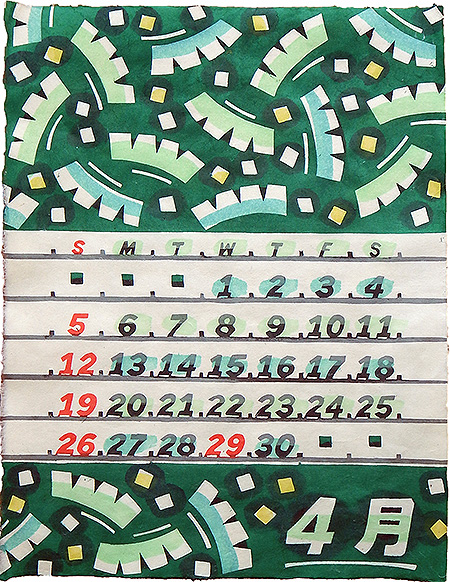 S M T W T F S
1 2 3 4
5 6 7 8 9 10 11
12 13 14 15 16 17 18
19 20 21 22 23 24 25
26 27 28 29 30
4月